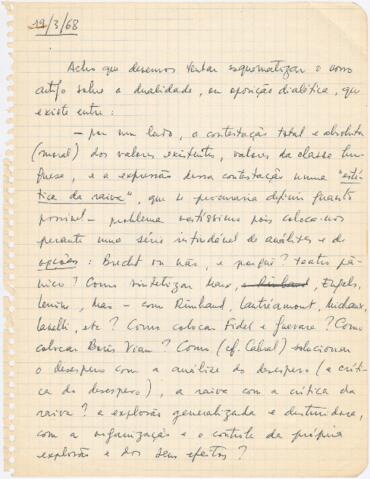 19/3/68
Acho que devemos tentar esquematizar o nosso
artigo sobre a dualidade, ou oposição dialética, que
existe entre:
— por um lado, a contestação total e absoluta
(moral) dos valores existentes, valores da classe bur-
guesa, e a expressão dessa contestação numa "esté-
tica da raiva", que se procuraria definir quanto
possível — problema vastíssimo pois coloca-nos
perante uma série infindável de análises e de
opções: Brecht ou não, e porquê? teatro pâ-
nico? Como sintetizar Marx, Engels,
Lenine, Mao — com Rimbaud, Lautréamont, Michaux,
etc? Como colocar Fidel e Guevara? Como
colocar Boris Vian? Como (cf. Cabral) solucionar
o desespero com a análise do desespero (a críti-
ca do desespero), a raiva com a crítica da
raiva? a explosão generalizada e destruidora,
com a organização e o controle da própria
explosão e dos seus efeitos?